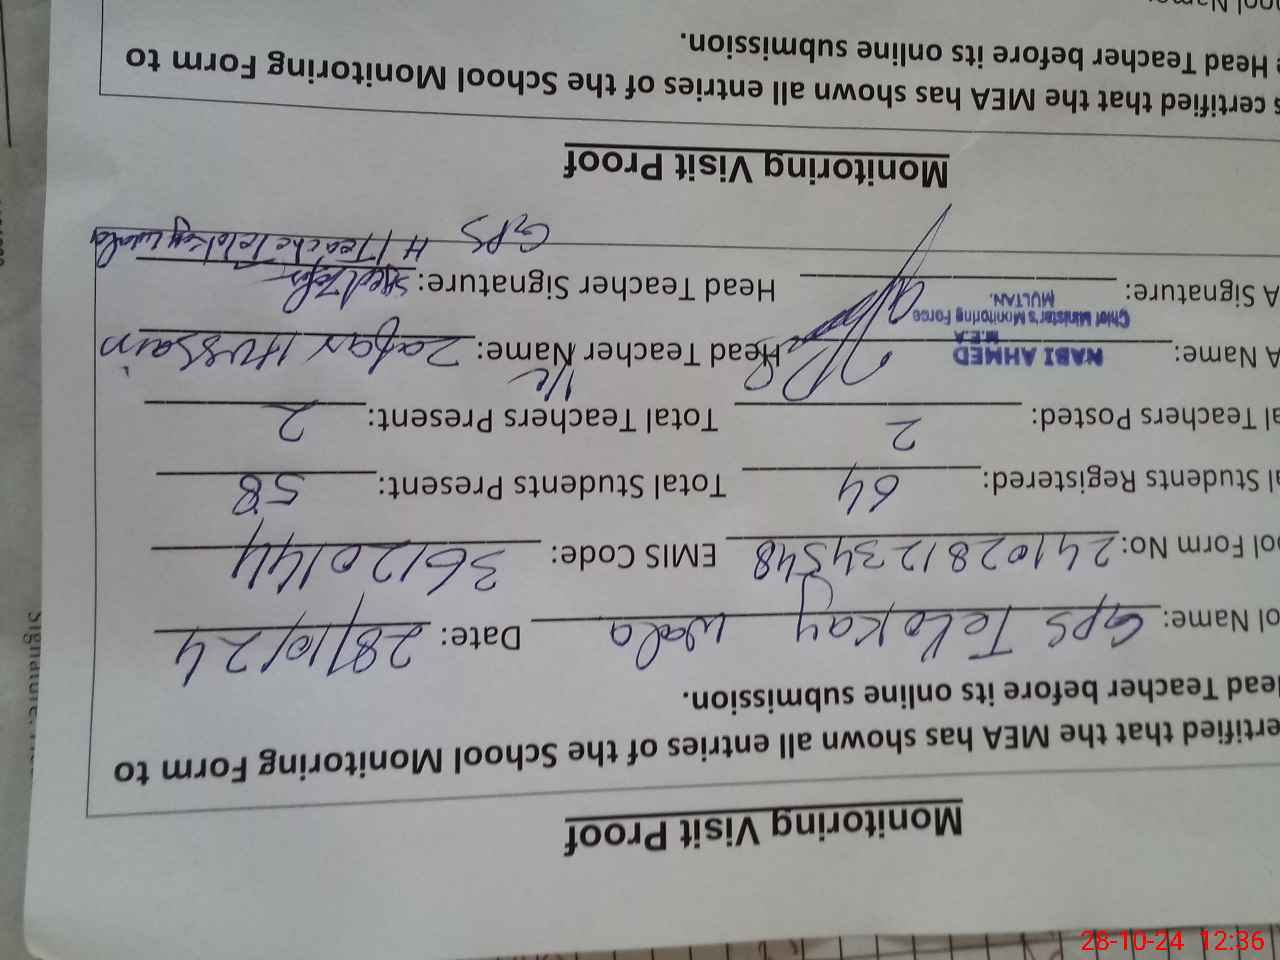 Monitoring Visit Proof
ertified that the MEA has shown all entries of the School Monitoring Form to
Head Teacher before its online submission.
ol Name: GPS Telokay wala Date: 28/10/24
ool Form No: 2410281234548 EMIS Code: 36120144
al Students Registered: 64 Total Students Present: 58
al Teachers Posted: 2 Total Teachers Present: 2
A Name: NABI AHMED I/c Head Teacher Name: Zafar Hussain
M.E.A
Chief Minister's Monitoring Force
MULTAN.
A Signature: Head Teacher Signature:
GPS H/Teache Telokaywala
Monitoring Visit Proof
s certified that the MEA has shown all entries of the School Monitoring Form to
e Head Teacher before its online submission.
ool Name:
Signature:
28-10-24 12:36